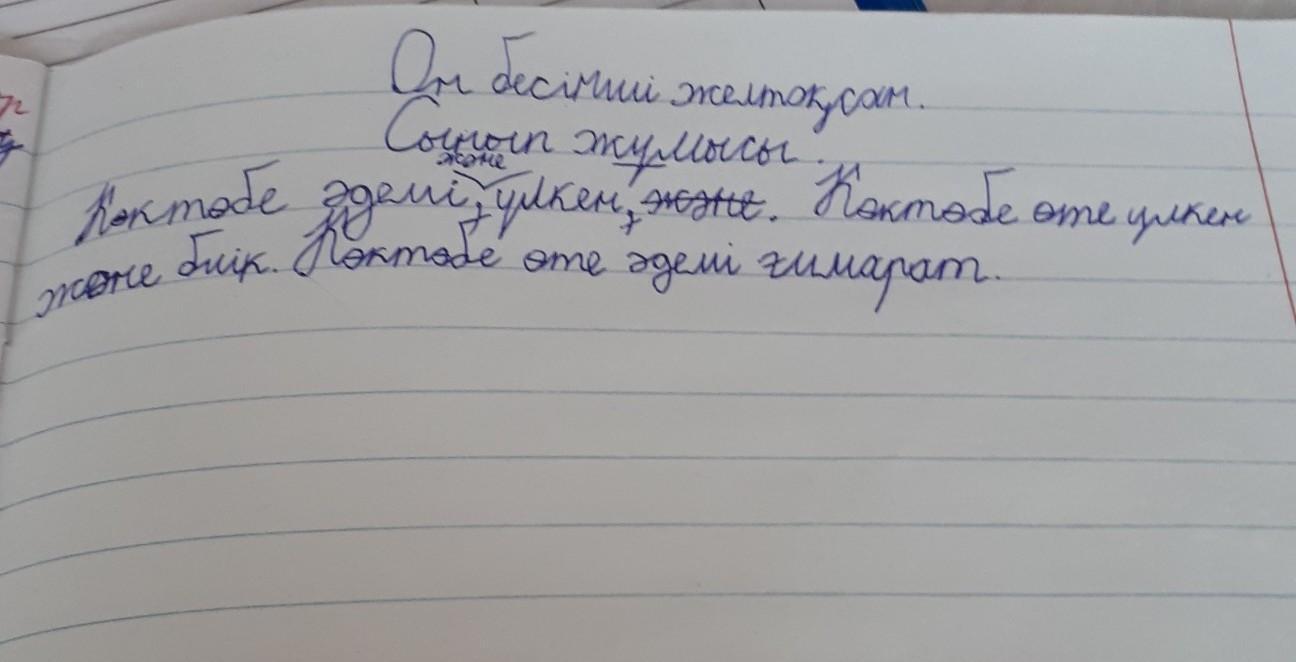 Он бесінші желтоқсан.
Сынып жұмысы.
Көктөбе әдемі және үлкен. Көктөбе өте үлкен
және биік. Көктөбе өте әдемі ғимарат.